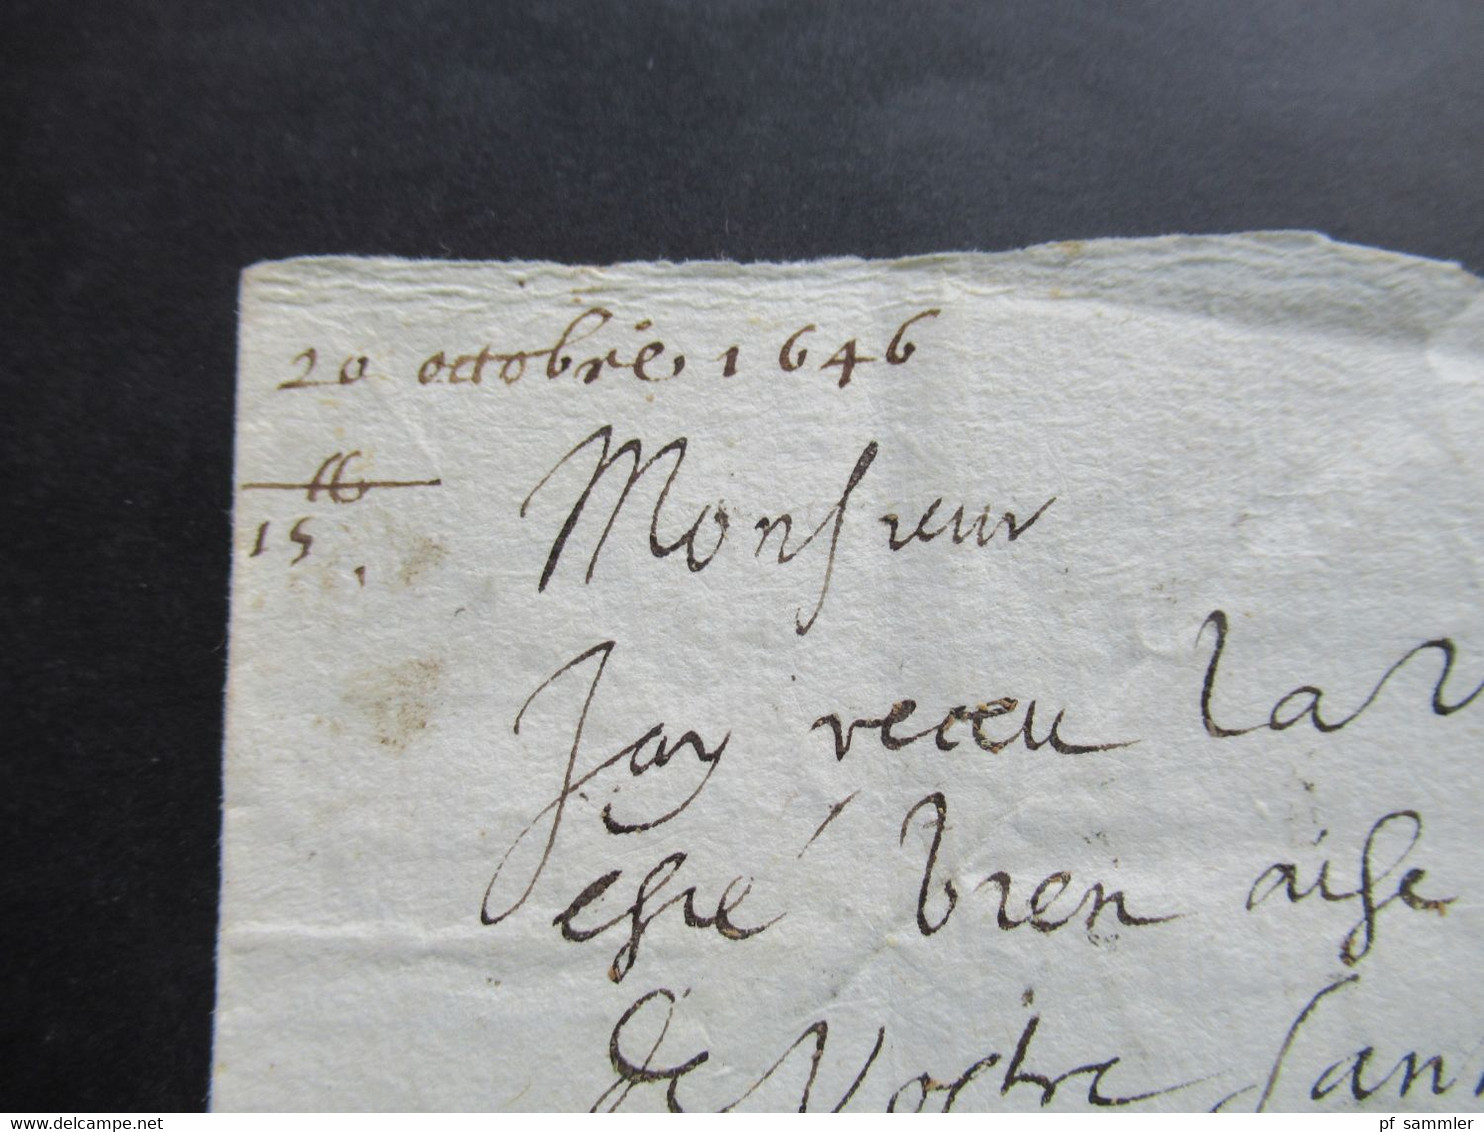 20 octobre 1646
66
15
Monsieur
Jay receu la
esté bien aise
de Vostre sant
www.delcampe.net
pf_sammler